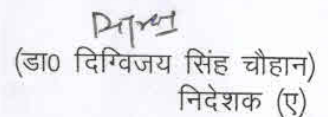 (डा0 दिग्विजय सिंह चौहान)
निदेशक (ए)